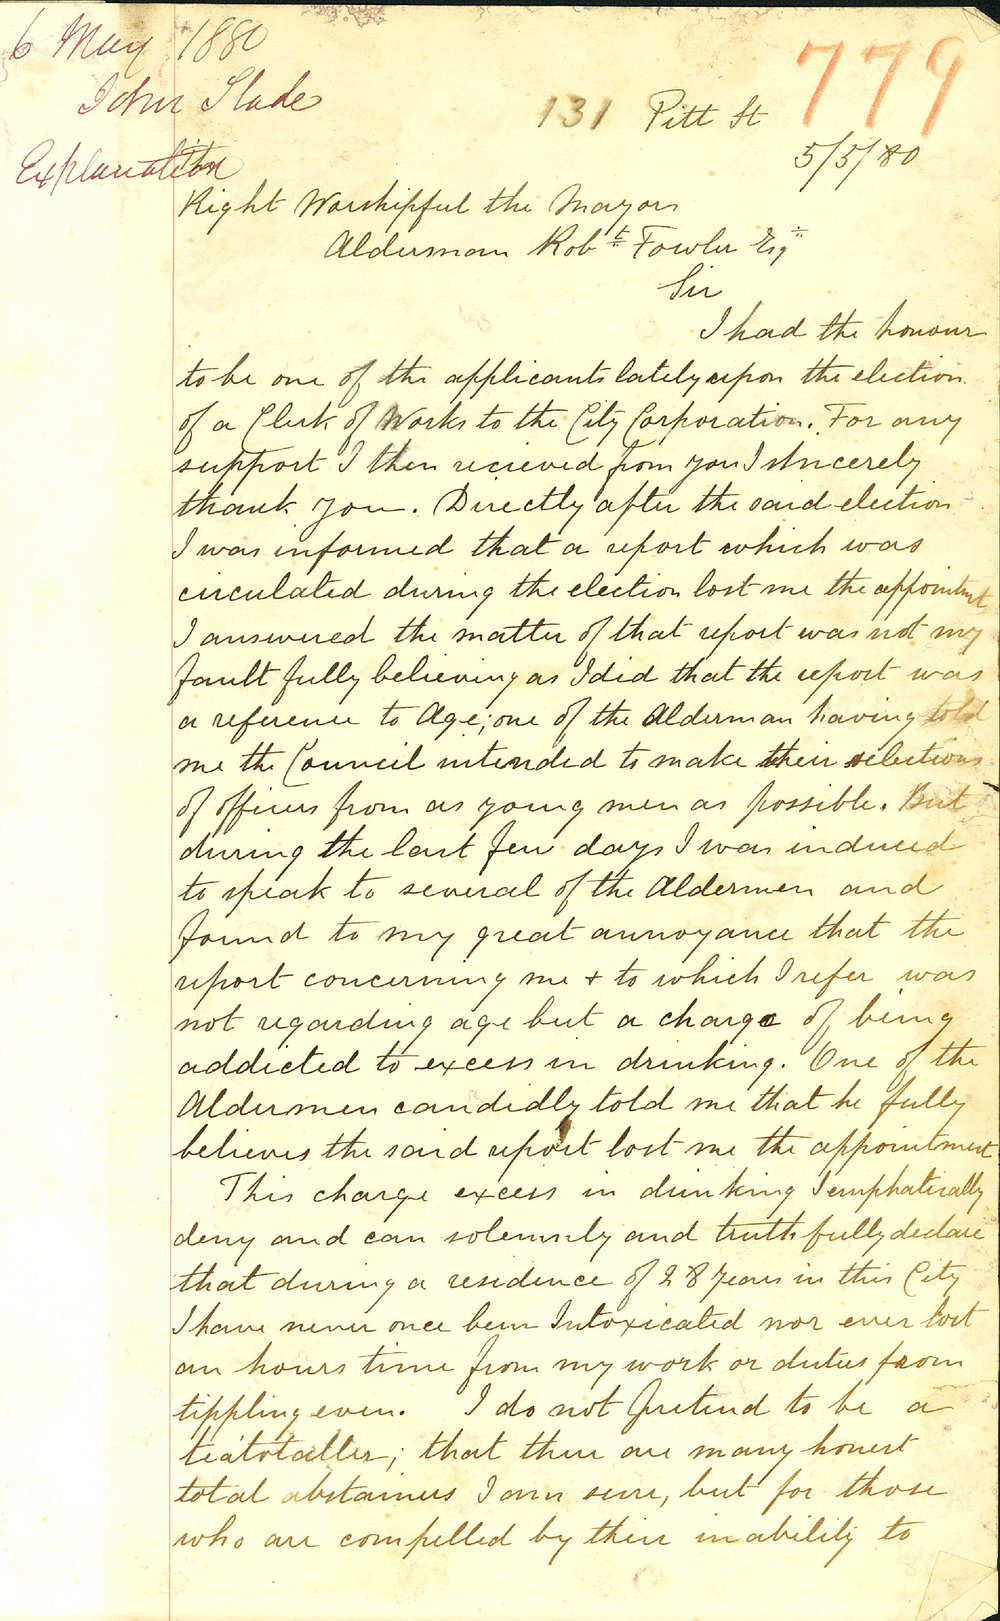 6 May 1880
John Slade
Explanation
779
131 Pitt St
5/5/80
The
Right Worshipful the Mayor
Alderman Robt Fowler Esq
Sir
I had the honour
to be one of the applicants lately upon the election
of a Clerk of Works to the City Corporation. For any
support I then recieved from you I sincerely
thank you. Directly after the said election
I was informed that a report which was
circulated during the election lost me the appointmt
I answered the matter of that report was not my
fault fully believing as I did that the report was
a reference to Age; one of the Alderman having told
me the Council intended to make their selections
of officers from as young men as possible. But
during the last few days I was induced
to speak to several of the Aldermen and
found to my great annoyance that the
report concerning me + to which I refer was
not regarding age but a charge of being
addicted to excess in drinking. One of the
Aldermen candidly told me that he fully
believes the said report lost me the appointment
This charge excess in drinking I emphatically
deny and can solemnly and truthfully declare
that during a residence of 28 years in this City
I have never once been Intoxicated nor ever lost
an hours time from my work or duties from
tippling even. I do not pretend to be a
teatotaller; that there are many honest
total abstainers I am sure, but for those
who are compelled by their inability to